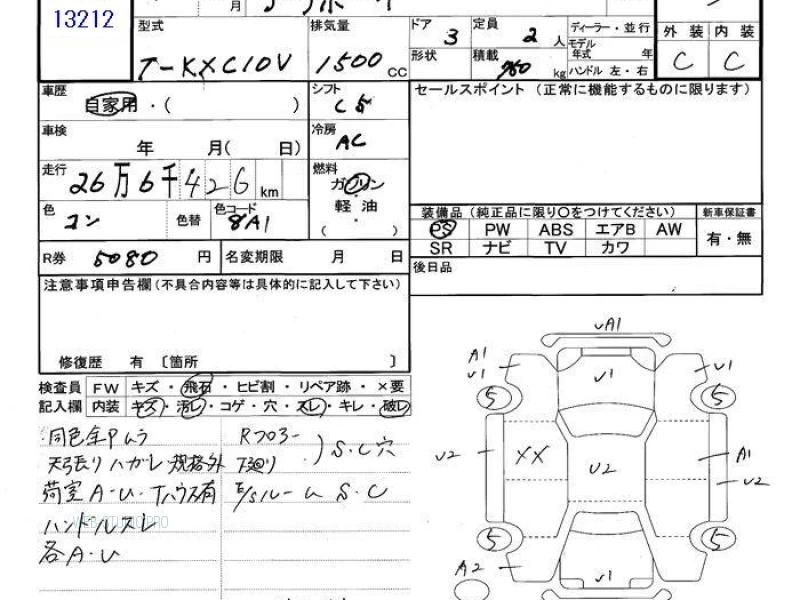 13212
月
型式 T-KXC10V
排気量 1500 CC
ドア 3
定員 2 人
形状
積載 750 kg
ディーラー・並行
モデル年式 年
ハンドル 左・右
外装 内装
C C
車歴 自家用・( )
シフト C5
セールスポイント (正常に機能するものに限ります)
車検 年 月( 日)
冷房 AC
走行 26万6千426 km
燃料 ガソリン
軽油
( )
色 コン 色替
色コード 8A1
装備品 (純正品に限り○をつけてください) 新車保証書
PS PW ABS エアB AW 有・無
SR ナビ TV カワ
R券 5080 円
名変期限 月 日
後日品
注意事項申告欄(不具合内容等は具体的に記入して下さい)
修復歴 有 〔箇所 〕
検査員 FW キズ・飛石・ヒビ割・リペア跡・×要
記入欄 内装 キズ・汚レ・コゲ・穴・スレ・キレ・破レ
同色全Pムラ
天張り ハガレ 規格外 下廻り
S.C穴
荷室 A-U. Tハウス有 E/Sルーム S.C
ハンドルスレ
WEB STUDIO PRO
各A-U
UA1
A1
U1
U1
U1
5
5
U2
XX
U2
A1
U2
5
5
A2
U1